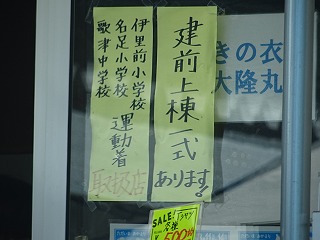 建前上棟一式
あります。
伊里前小学校
名足小学校
歌津中学校
運動着
取扱店
きの衣
大隆丸
SALE!